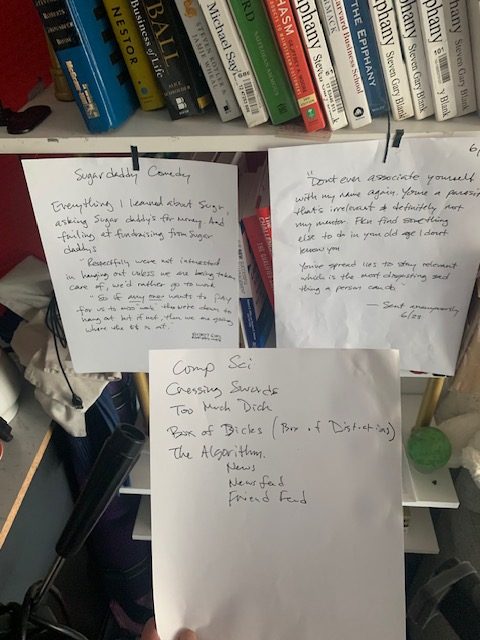 NESTOR
Business of Life
BALL
ALICE SCHROEDER
Michael
CHASM
Epiphany
Harvard Business School
THE EPIPHANY
Steven Gary Blank
Epiphany
Steven Gary Blank
Epiphany
Steven Gary Blank
Sugar daddy Comedy
Everything I learned about Sugr,
asking Sugar daddy's for money. And
failing at fundraising from Sugar
daddy's
"Respectfully were not interested
in hanging out unless we are being taken
care of, we'd rather go to work
"So if any one wants to pay
for us to miss work they're down to
hang out but if not, then we are going
where the $$ is at."
6/
"Dont ever associate yourself
with my name again. Youre a parasite
thats irrelevant & definitely not
my mentor. Pls find something
else to do in your old age I dont
know you
You've spread lies to stay relevant
which is the most disgusting sad
thing a person can do."
— Sent anonymously
6/28
Comp Sci
Crossing Swords
Too Much Dick
Box of Dicks (Box of Distractions)
The Algorithm.
News
Newsfeed
Friend Feed